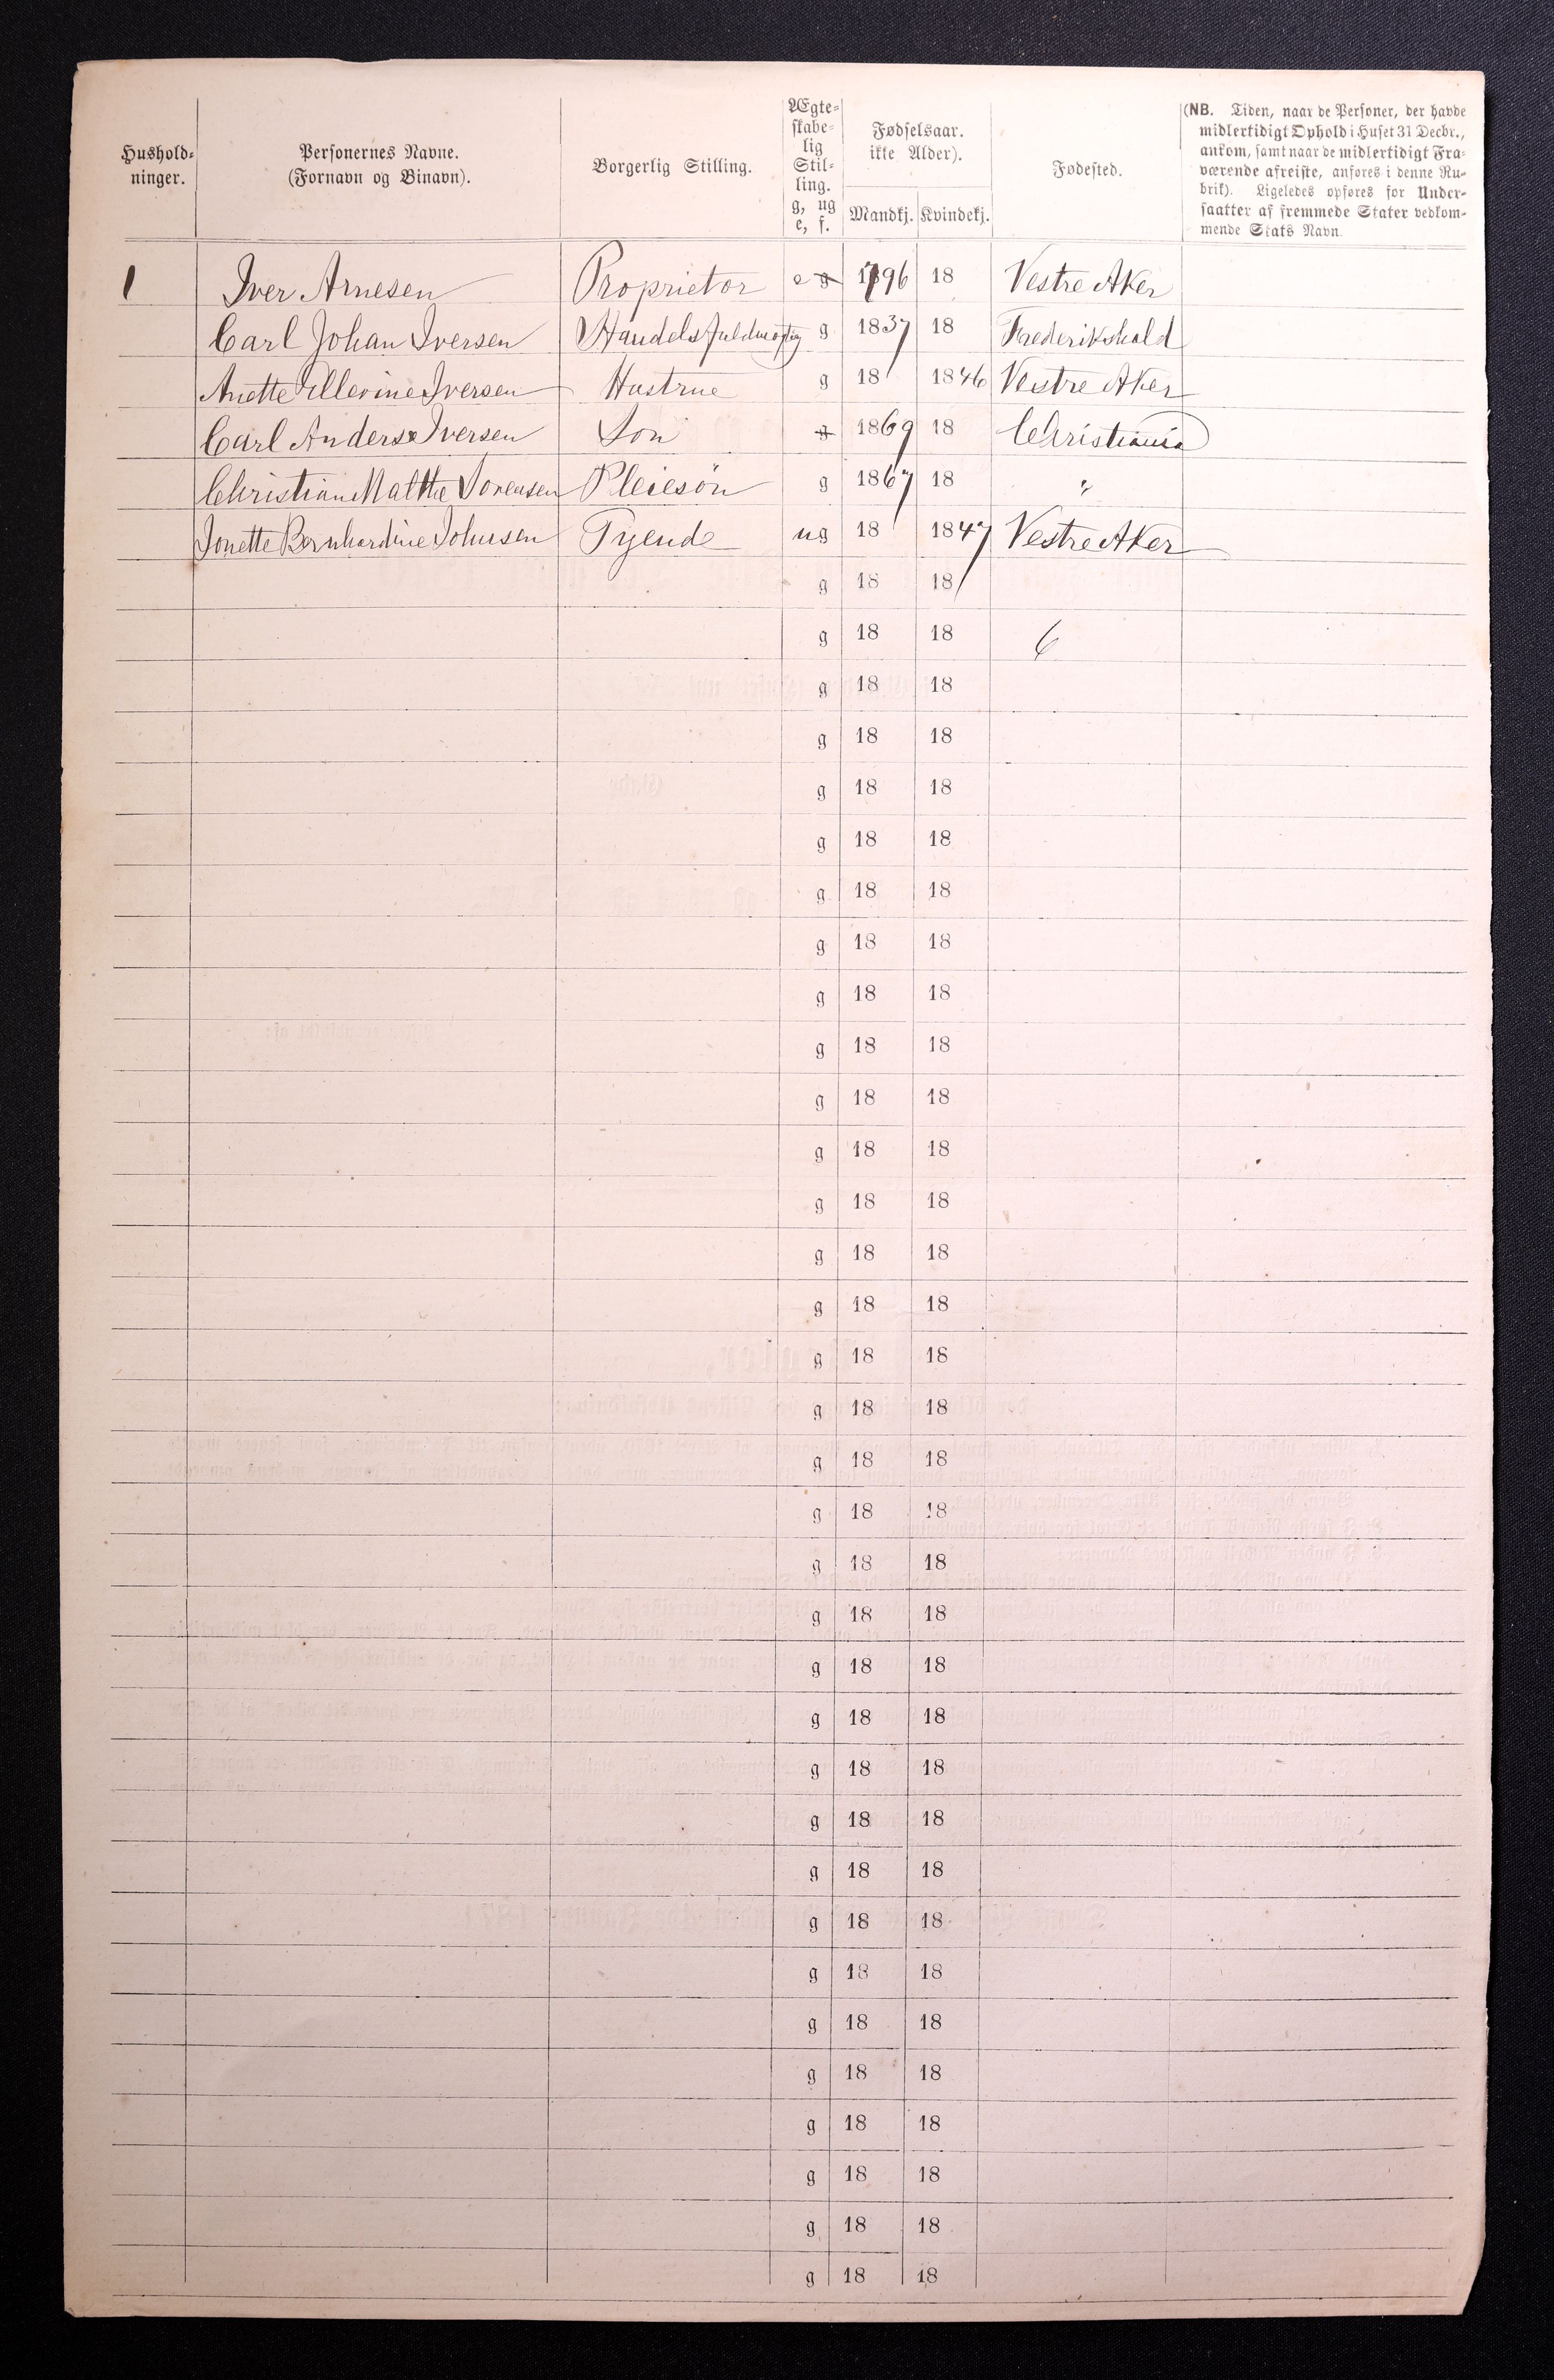 Hushold-
ninger.
Personernes Navne.
(Fornavn og Binavn).
Borgerlig Stilling.
Ægte-
skabe-
lig
Stil-
ling.
g, ug
e, f.
Fødselsaar.
ikke Alder).
Mandkj. Kvindekj.
Fødested.
(NB. Tiden, naar de Personer, der havde
midlertidigt Ophold i Huset 31 Decbr.,
ankom, samt naar de midlertidigt Fra-
værende afreiste, anføres i denne Ru-
brik). Ligeledes opføres for Under-
saatter af fremmede Stater vedkom-
mende Stats Navn.
1 Iver Arnesen Proprietor e g 1796 18 Vestre Aker
Carl Johan Iversen Handelsfuldmægtig g 1837 18 Frederikshald
Anette Ellevine Iversen Hustrue g 18 1846 Vestre Aker
Carl Anders Iversen Son g 1869 18 Christiania
Christian Malthe Sorensen Pleiesön g 1867 18 "
Jonette Bernhardine Johnsen Tyende ug 18 1847 Vestre Aker
g 18 18
g 18 18 6
g 18 18
g 18 18
g 18 18
g 18 18
g 18 18
g 18 18
g 18 18
g 18 18
g 18 18
g 18 18
g 18 18
g 18 18
g 18 18
g 18 18
g 18 18
g 18 18
g 18 18
g 18 18
g 18 18
g 18 18
g 18 18
g 18 18
g 18 18
g 18 18
g 18 18
g 18 18
g 18 18
g 18 18
g 18 18
g 18 18
g 18 18
g 18 18